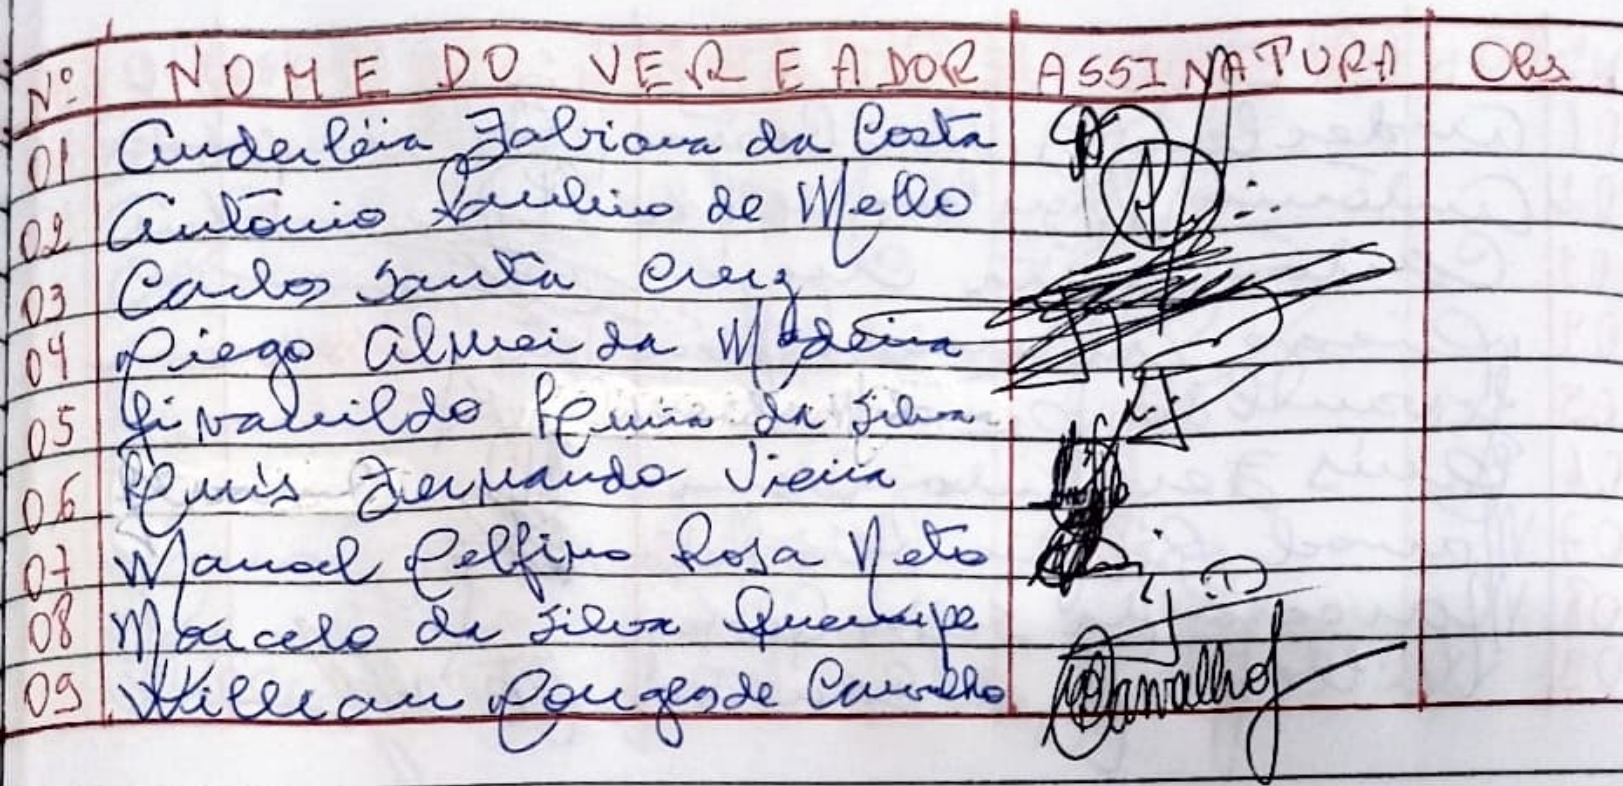 Nº NOME DO VEREADOR ASSINATURA Obs
01 Anderléia Fabiana da Costa
02 Antônio Paulino de Mello
03 Carlos Santa Cruz
04 Diego Almeida Madeira
05 Givanildo da Silva
06 Luís Fernando Vieira
07 Manoel Delfino Rosa Neto
08 Marcelo da Silva
09 Willian de Carvalho Carvalho